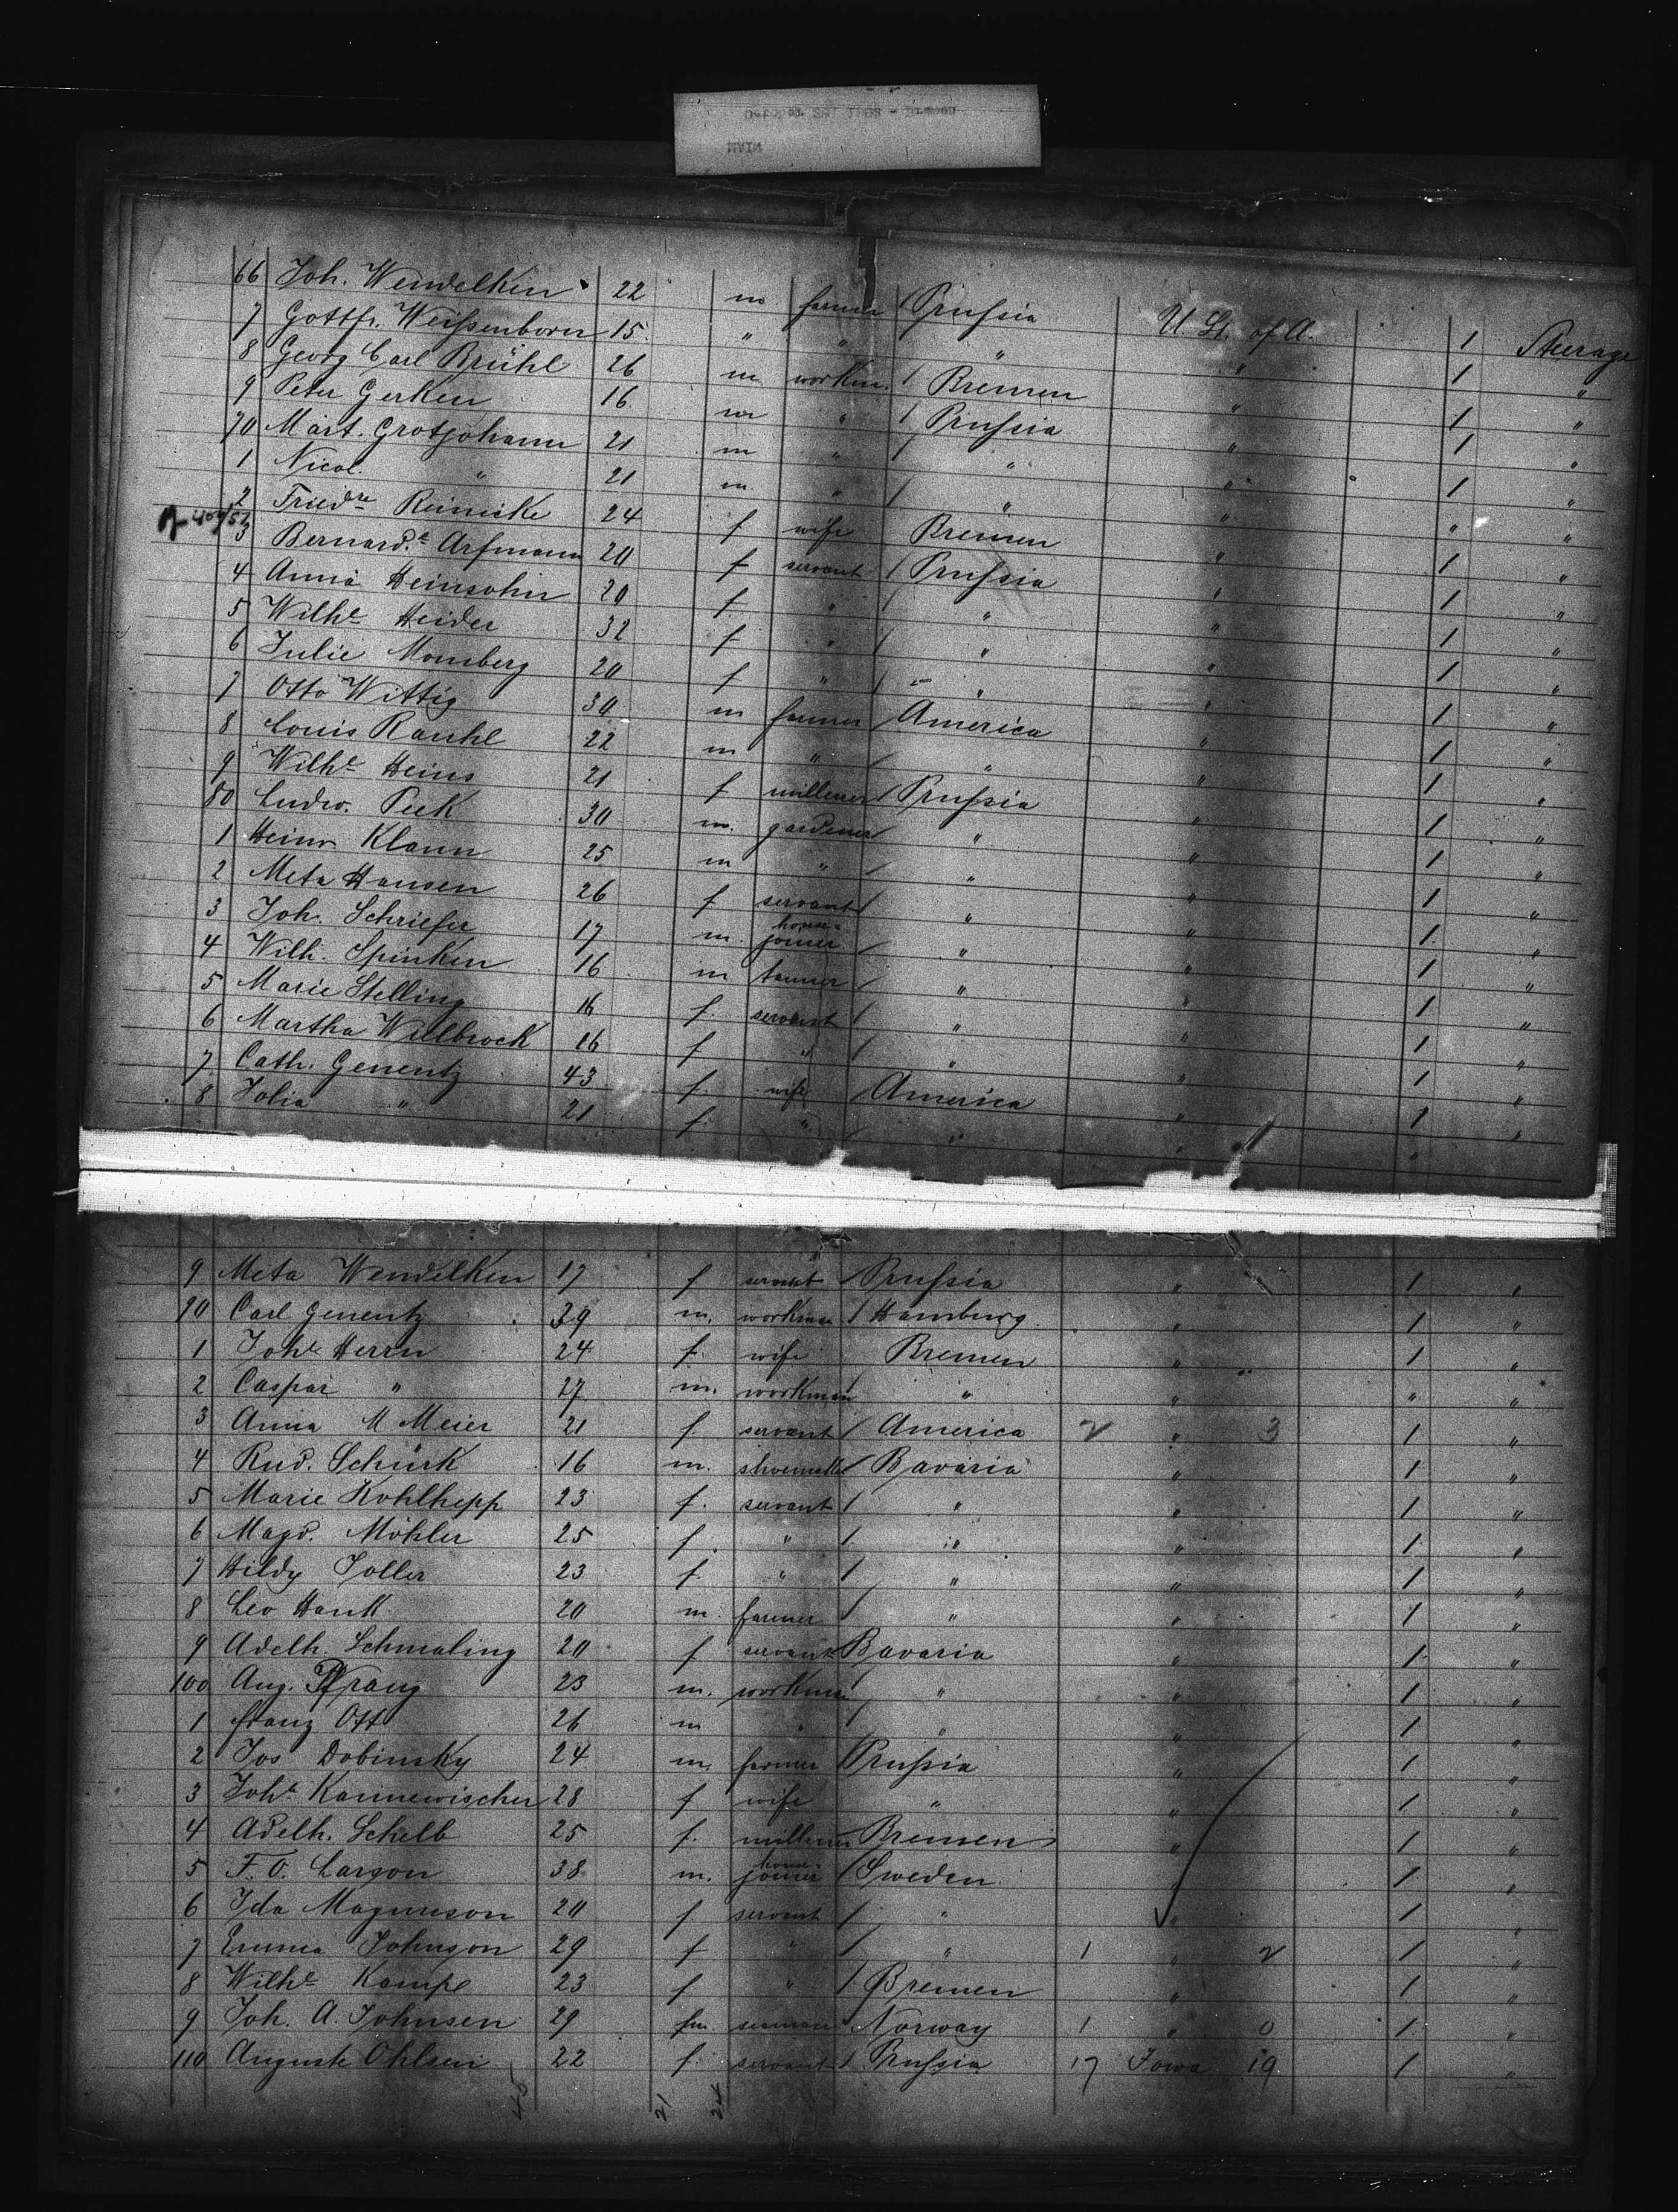 66 Joh. Wendelken 22 m farmer / Prussia U. St. of A. 1 Steerage
7 Gottfr. Weissenborn 15 " " " " 1 "
8 Georg Carl Brühl 26 m workm. / Bremen " 1 "
9 Peter Gerken 16 m " / Prussia " 1 "
70 Mart. Grotjohann 21 m " / " " 1 "
1 Nicol. " 21 m " / " " " "
2 Friedke Reinicke 24 f wife Bremen " 1 "
3 Bernard.e Arfmann 20 f servant / Prussia " 1 "
4 Anna Heinsohn 20 f " / " " 1 "
5 Wilhe Heider 32 f " / " " 1 "
6 Julie Momberg 20 f " / " " 1 "
7 Otto Wittig 30 m farmer / America " 1 "
8 Louis Rauhl 22 m " / " " 1 "
9 Wilhe Heins 21 f milliner / Prussia " 1 "
80 Ludw. Peek 30 m. gardener / " " 1 "
1 Heinr Klann 25 m " / " " 1 "
2 Meta Hansen 26 f servant / " " 1 "
3 Joh. Schriefer 17 m. house-joiner / " " 1 "
4 Wilh. Spinken 16 m tanner / " " 1 "
5 Marie Stelling 16 f. servant / " " 1 "
6 Martha Willbrock 16 f " / " " 1 "
7 Cath. Genentz 43 f. wife / America " 1 "
8 Julia " 21 f. " / " " "
9 Meta Wendelken 17 f servant / Prussia " 1 "
90 Carl Genentz 39 m. workman / Hamburg " 1 "
1 Johe Herrn 24 f. wife Bremen " 1 "
2 Caspar " 27 m. workman / " " " "
3 Anna M Meier 21 f. servant / America 2 " 3 1 "
4 Rud. Schürk 16 m. shoemaker / Bavaria " 1 "
5 Marie Kohlhepp 23 f. servant / " " 1 "
6 Magd. Möhler 25 f. " / " " 1 "
7 Hildy Joller 23 f. " / " " 1 "
8 Leo Hank 20 m. farmer / " " 1 "
9 Adelh. Schmaling 20 f servant Bavaria " 1 "
100 Aug. 23 m. workman / " " 1 "
1 Franz Ott 26 m " / " " 1 "
2 Jos Dobinsky 24 m. farmer / Prussia " 1 "
3 Johe Kannewischer 28 f wife " " 1 "
4 Adelh. Schelb 25 f. milliner Bremen " 1 "
5 F. O. Larson 38 m. house-joiner / Sweden " 1 "
6 Ida Magnuson 20 f servant / " " 1 "
7 Emma Johnson 29 f " / " 1 " 2 1 "
8 Wilhe Kampe 23 f " / Bremen " 1 "
9 Joh. A. Johnsen 29 m. seaman Norway 1 " 0 1 "
110 Auguste Ohlsen 22 f. servant / Prussia 17 Iowa 19 1 "
45 21 24